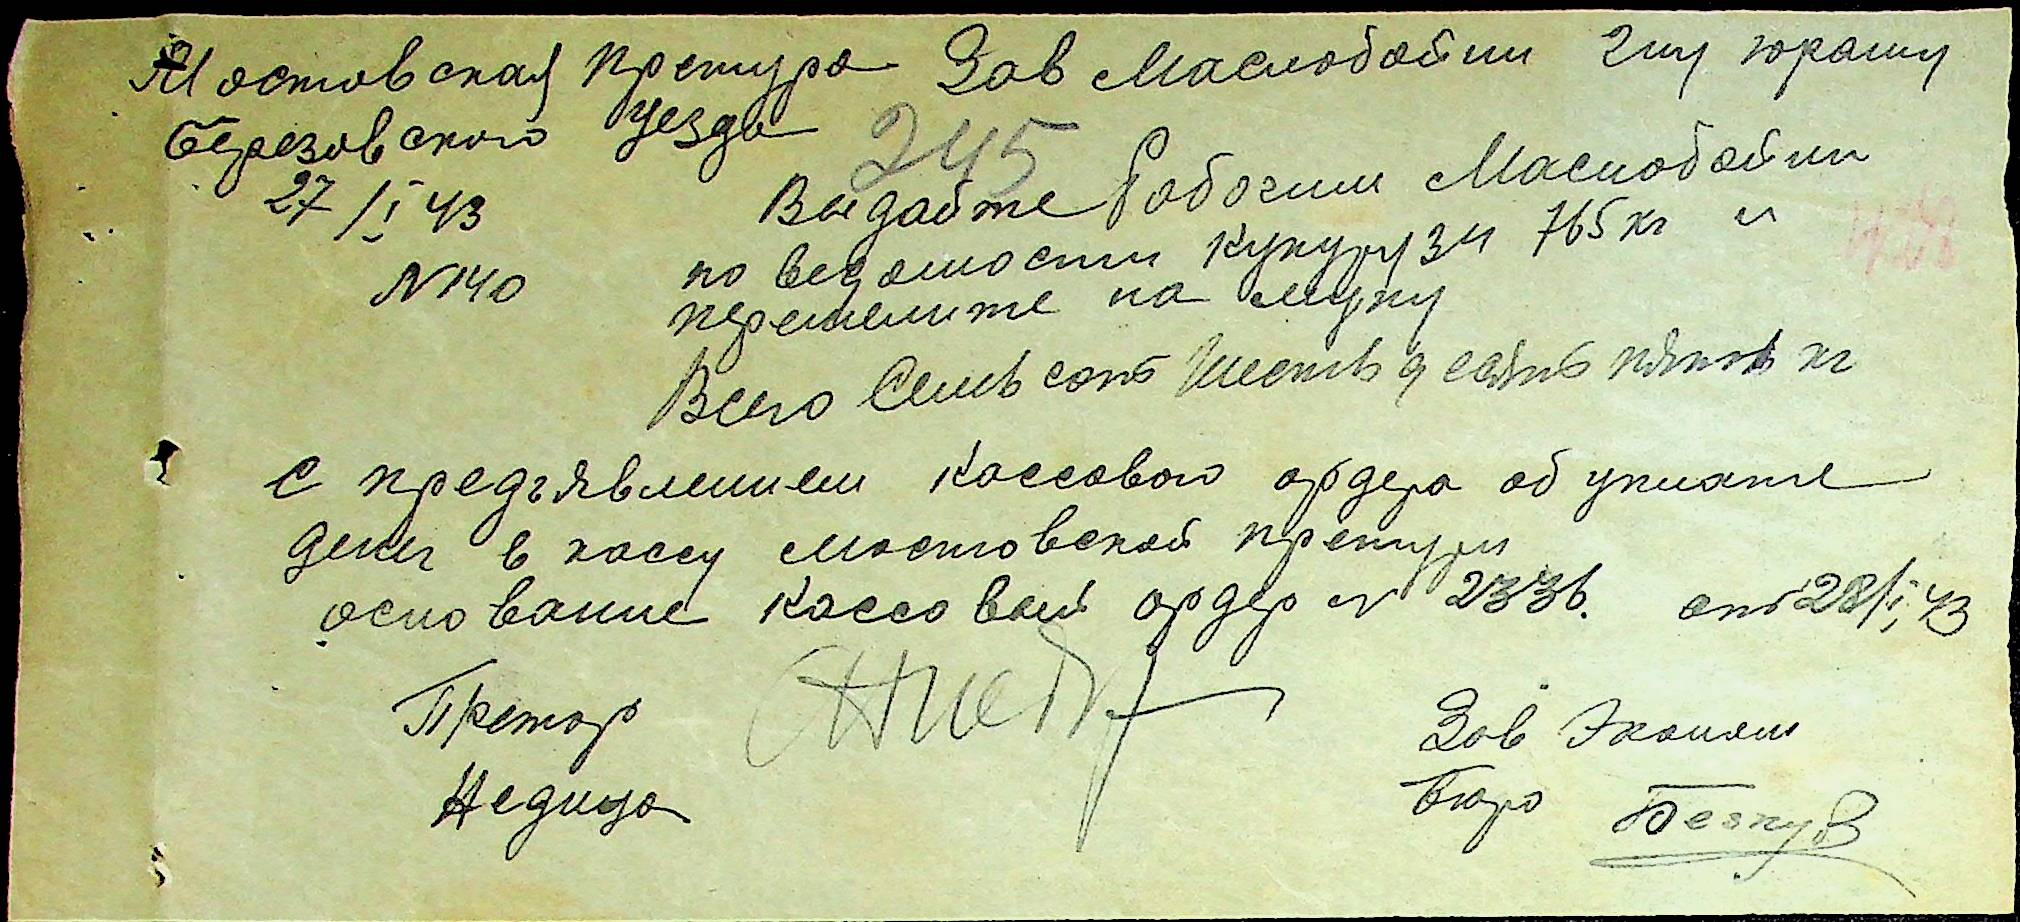 Мостовская Претура Зав Маслобойни г-ну Юрашу
Березовского Уезда
245
27/I 43
Выдайте Рабочим Маслобойни
№140
по ведомости кукурузи 765 кг и
перемелите на муку
Всего Семьсот Шестьдесять пять кг
с предъявлением кассового ордера об уплате
денег в кассу мостовской претури
основание кассовый ордер № 2336. от 28/I 43
Претор
Зав Эконом
Недица
Бюро